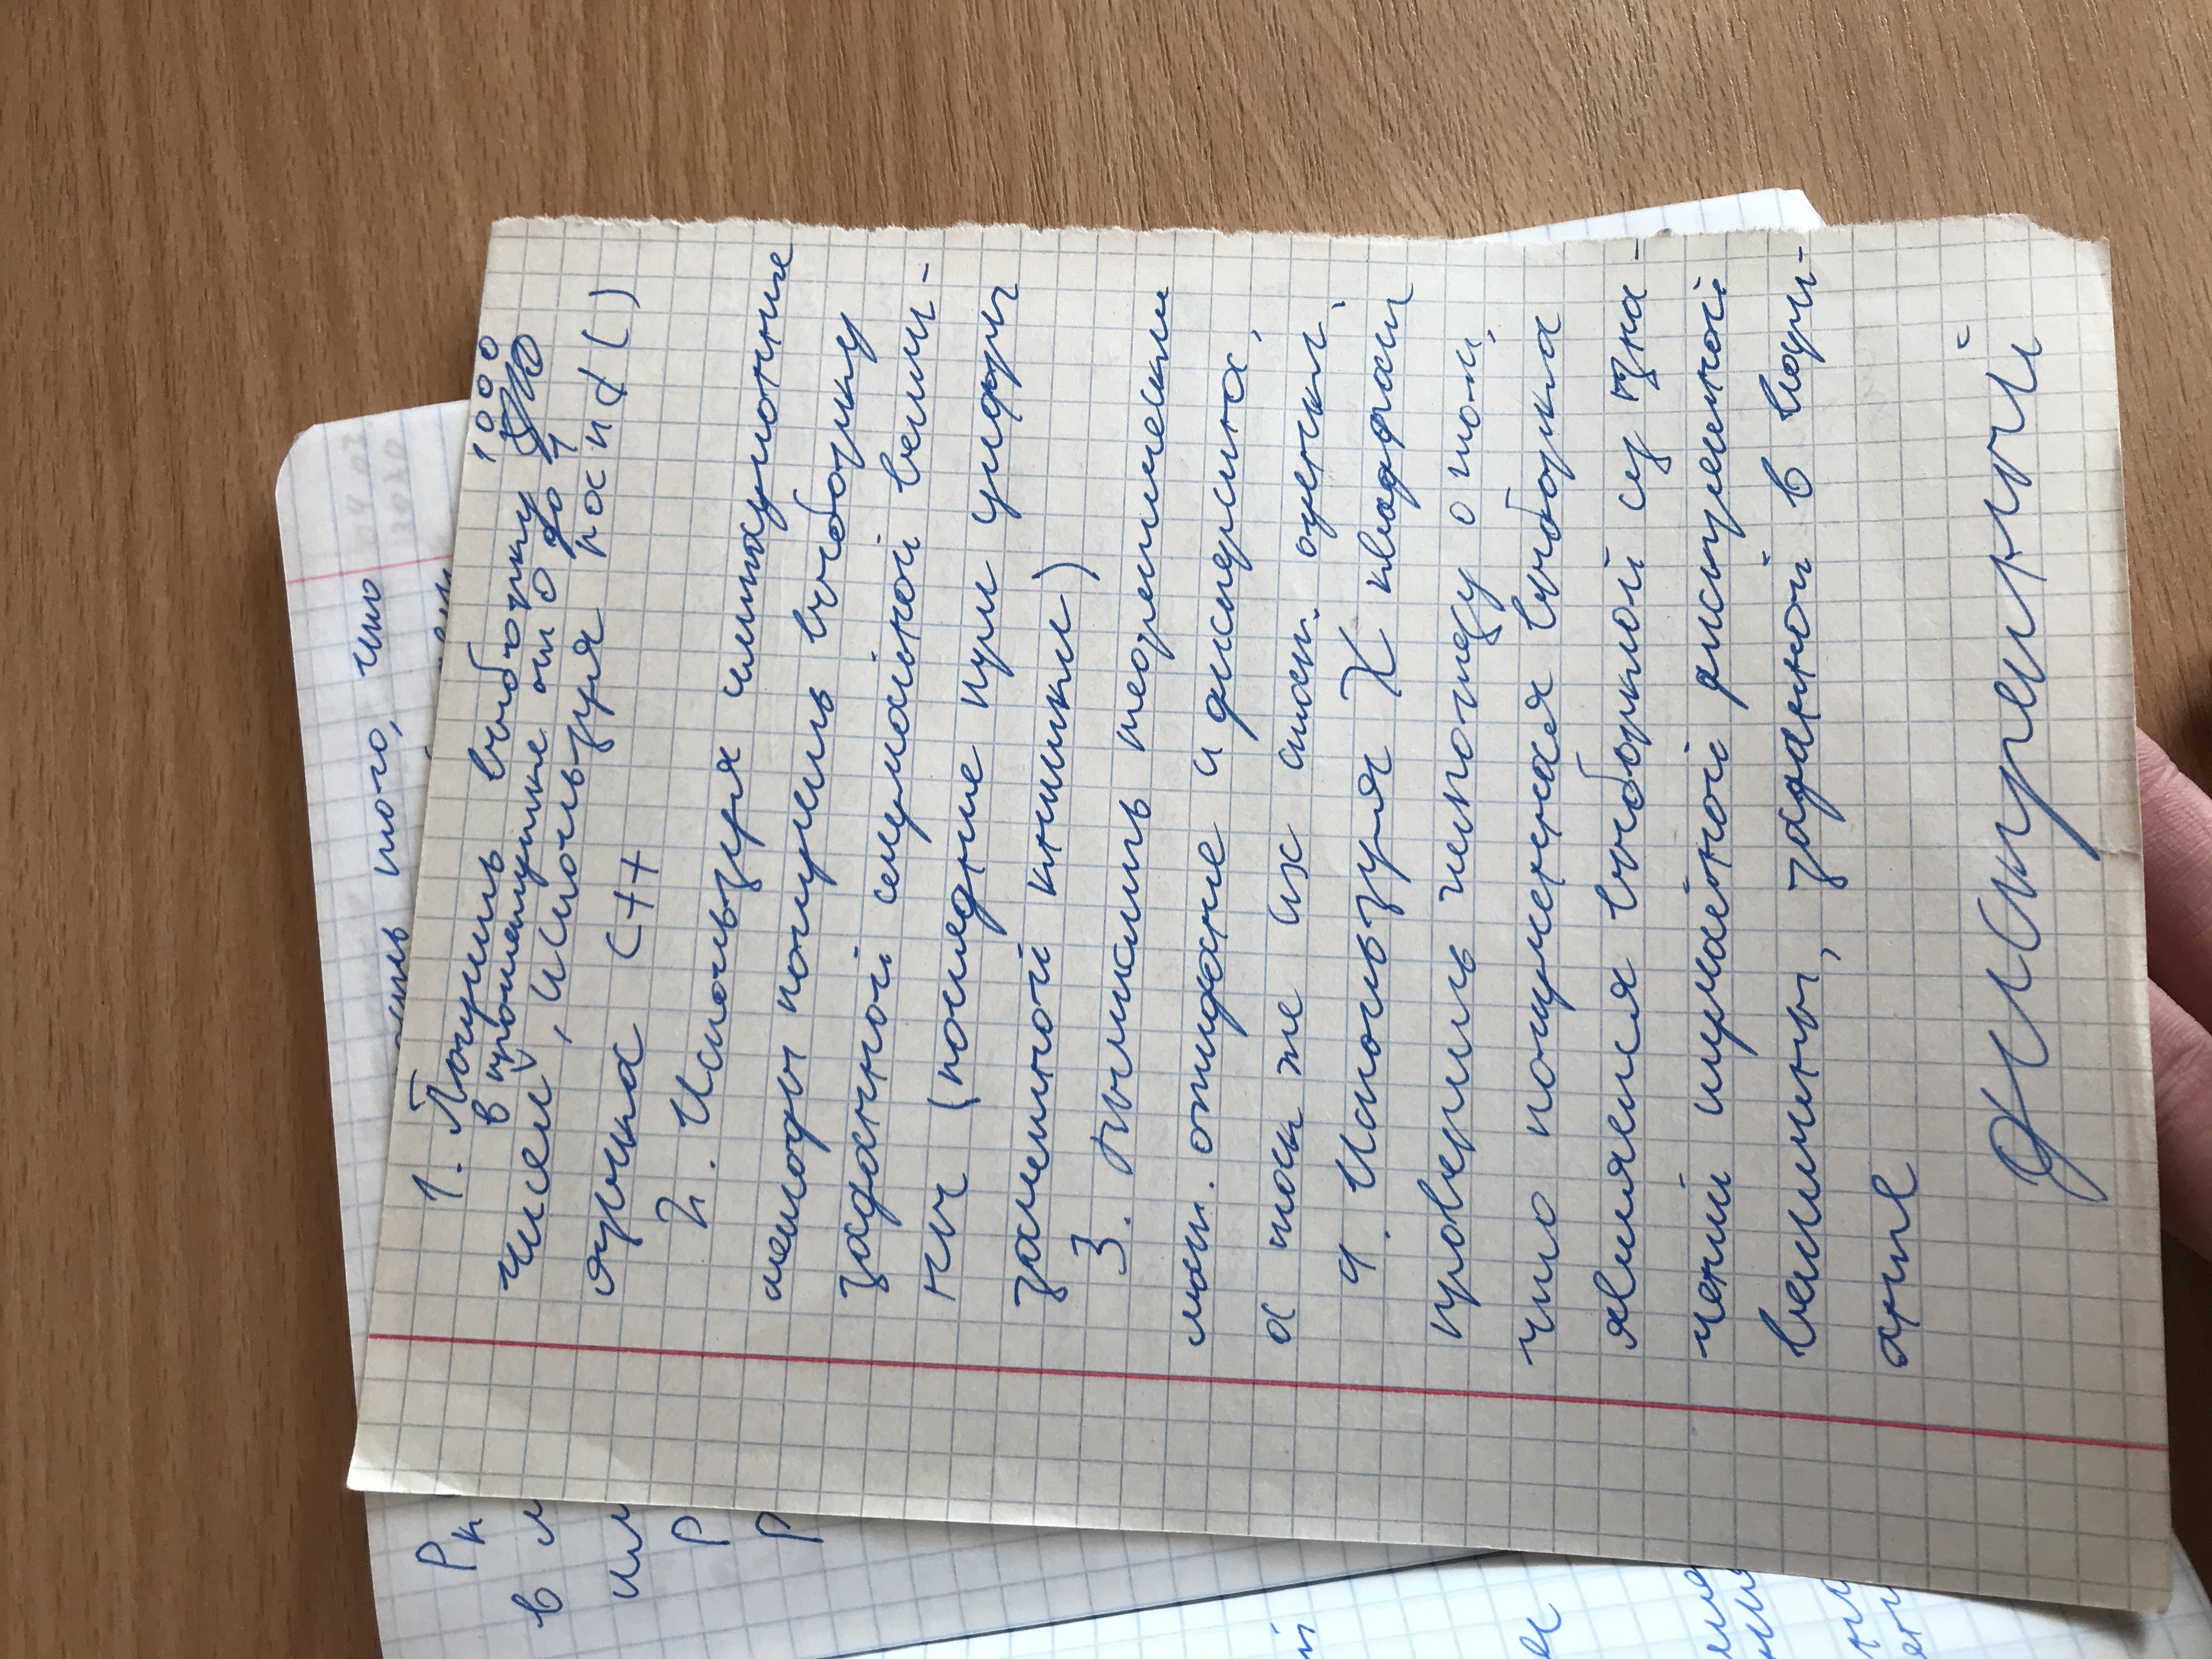 сть того, что
04 03
2020
Pк
в м
им
P
P
1. Получить выборку 1000
в промежутке от 0 до 1
чисел, используя rand()
языка C++
2. Используя имитационные
методы получить выборку
заданной случайной величи-
ны (последние при цифры
зачетной книжки)
3. Вычислить теоретически
мат. ожидание и дисперсию,
а так же их стат. оценки.
4. Используя X квадрат
проверить гипотезу о том,
что полученная выборка
является выборкой из зна-
чений случайной дискретной
величины, заданной в вари-
анте
дискретной